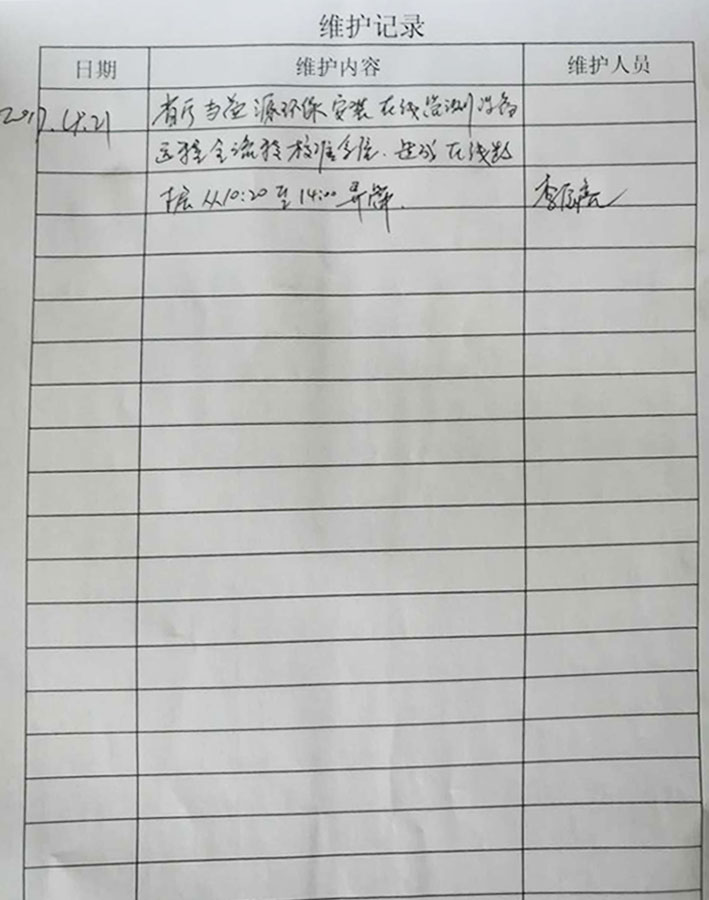 维护记录
日期 维护内容 维护人员
2017.4.21 省厅 源环保安装在线监测设备
远程全流程校准系统.造成在线数
据从10:20至14:00异常.